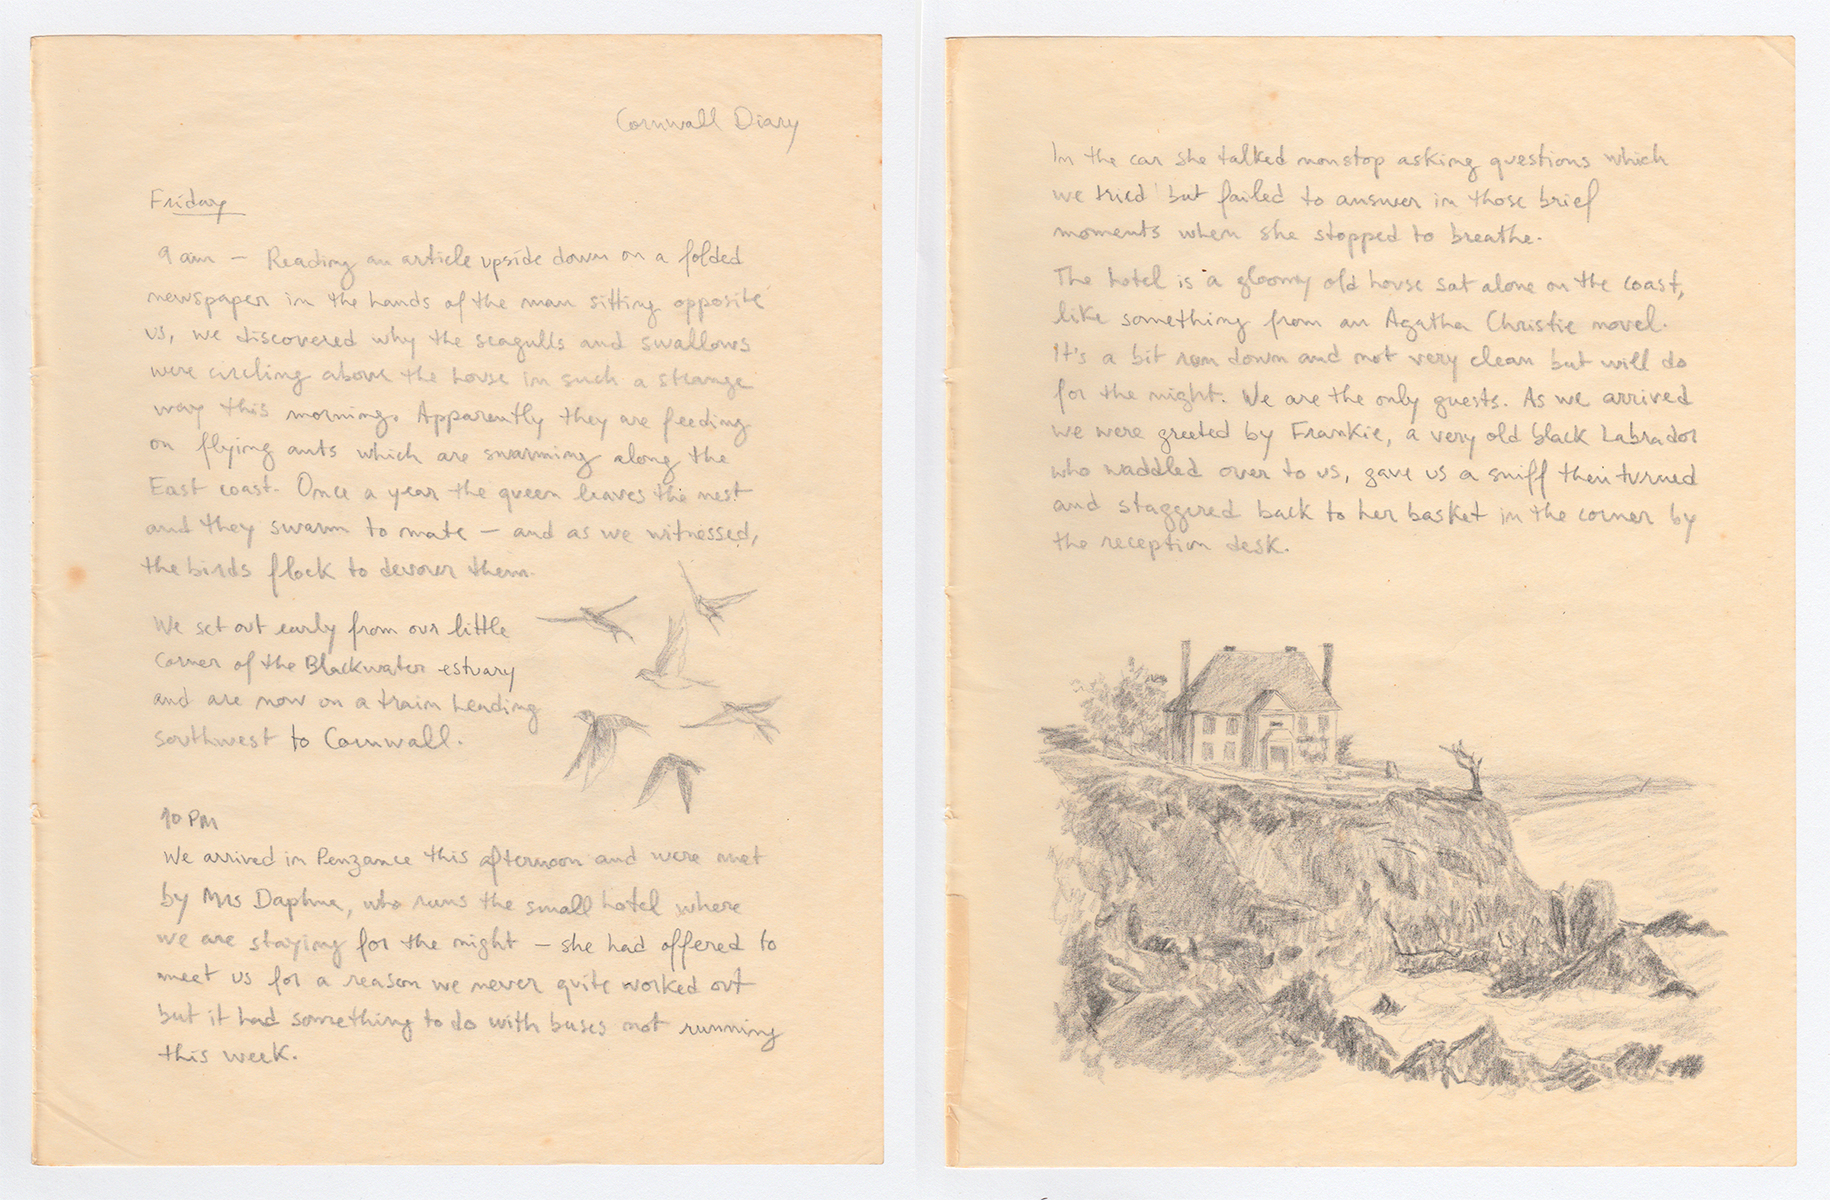 Cornwall Diary
Friday
9 am – Reading an article upside down on a folded
newspaper in the hands of the man sitting opposite
us, we discovered why the seagulls and swallows
were circling above the house in such a strange
way this morning. Apparently they are feeding
on flying ants which are swarming along the
East coast. Once a year the queen leaves the nest
and they swarm to mate – and as we witnessed,
the birds flock to devour them.
We set out early from our little
corner of the Blackwater estuary
and are now on a train heading
southwest to Cornwall.
10 PM
We arrived in Penzance this afternoon and were met
by Mrs Daphne, who runs the small hotel where
we are staying for the night – she had offered to
meet us for a reason we never quite worked out
but it had something to do with buses not running
this week.
In the car she talked nonstop asking questions which
we tried but failed to answer in those brief
moments when she stopped to breathe.
The hotel is a gloomy old house sat alone on the coast,
like something from an Agatha Christie novel.
It's a bit run down and not very clean but will do
for the night. We are the only guests. As we arrived
we were greeted by Frankie, a very old black Labrador
who waddled over to us, gave us a sniff then turned
and staggered back to her basket in the corner by
the reception desk.